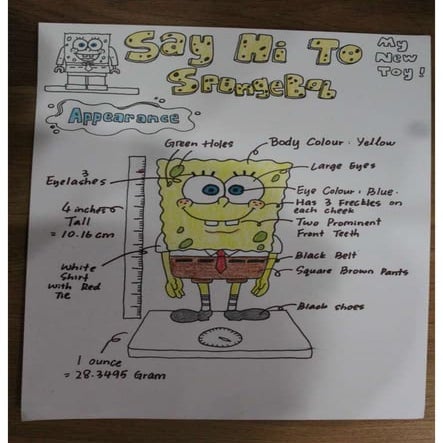 Say Hi To
SpungeBob
My
New
Toy!
Appearance
Green Holes
Body Colour: Yellow
Large Eyes
3
Eyelashes
Eye Colour: Blue.
Has 3 Freckles on
each cheek
4 inches
Tall
= 10.16 cm
Two Prominent
Front Teeth
Black Belt
Square Brown Pants
White
Shirt
with Red
Tie
Black shoes
1 ounce
= 28.3495 Gram